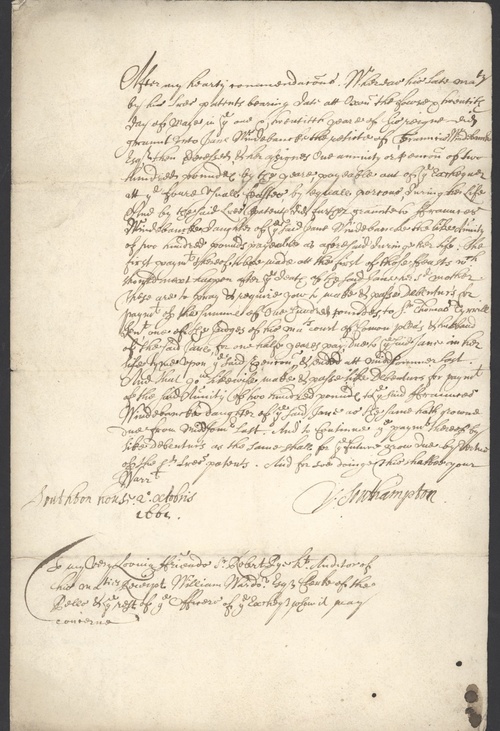 After my hearty commendacons. Whereas his late maty
by his lres patents bearing date att Oxon the three & twentieth
day of in ye one & twentieth yeare of his reigne did
graunt unto Jane Windebancke the relict of Francis Windebanck
Esqr then deceased & her assignes One annuity or pencon of two
hundred pounds by the yeare payeable out of ye Excheqr
att ye foure usuall feastes by equall porcons, during her life
And by the said lres patents did further graunte to ffrances
Windebancke daughter of ye said Jane Windebancke the like annuity
of two hundred pounds payeable as aforesaid during her life. The
first paymt thereof to be made at the first of those feasts wch
should next happen after ye death of the said Jane her mother
These are to pray & require you to make & passe debenturs for
paymt of the summe of One hundred pounds to Sr Thomas Tyrrell
Knt one of the Judges of his mats court of Comon pleas & husband
of the said Jane for one halfe yeares pay due to ye said Jane in her
life tyme upon ye said pencon & ended att Midsommer last.
And that you likewise make & passe like Debenturs for paymt
of the said Annuity of two hundred pounds to ye said ffrances
Windebancke daughter of ye said Jane as the same hath growne
due from Midsomr last. And to continue ye paymt thereof by
like debenturs as the same shall for ye future grow due by vertue
of the sd lres patents. And for soe doing this shalbe your
Warrt
Southton house 2o Octobris
166
T Southampton
To my very Loving ffriends Sr Robert Pye Kt Auditor of
his maties Receipt William Wardor Esqr Clerke of the
Pells & ye rest of ye officers of ye Excheqr whom it may
concerne